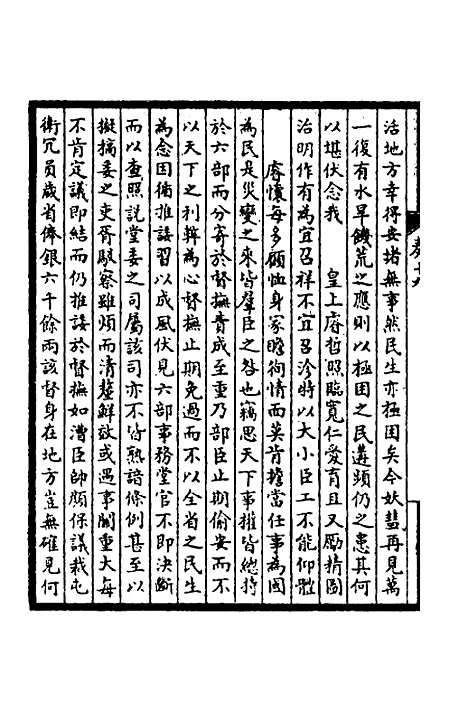 活地方幸得安堵無事然民生亦極困矣今妖彗再見萬
一復有水旱饑荒之應則以極困之民遘頻仍之患其何
以堪伏念我　　皇上睿哲照臨寬仁愛育且又勵精圖
治明作有為宜召祥不宜召沴特以大小臣工不能仰體
睿懷每多顧恤身家瞻徇情面莫肯擔當任事為國
為民是災變之來皆羣臣之咎也竊思天下事權皆總持
於六部而分寄於督撫責成至重乃部臣止期偷安而不
以天下之利弊為心督撫止期免過而不以全省之民生
為念因循推諉習以成風伏見六部事務堂官不即決斷
而以查照說堂委之司屬該司亦不皆熟諳條例甚至以
擬摘委之吏胥駁察雖煩而清釐鮮效或遇事關重大每
不肯定議即結而仍推諉於督撫如漕臣帥顏保議裁屯
衛冗員歲省俸銀六千餘兩該督身在地方豈無確見何